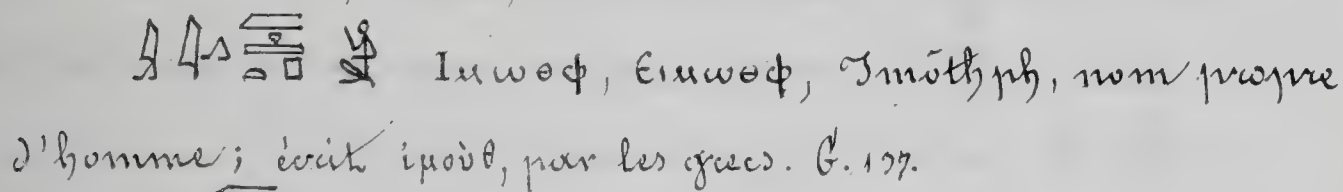 Ⲓⲙⲱⲑⲫ, Ⲉⲓⲙⲱⲑⲫ, Imôthph, nom propre
d'homme; écrit ἰμοὺθ, par les grecs. G. 197.